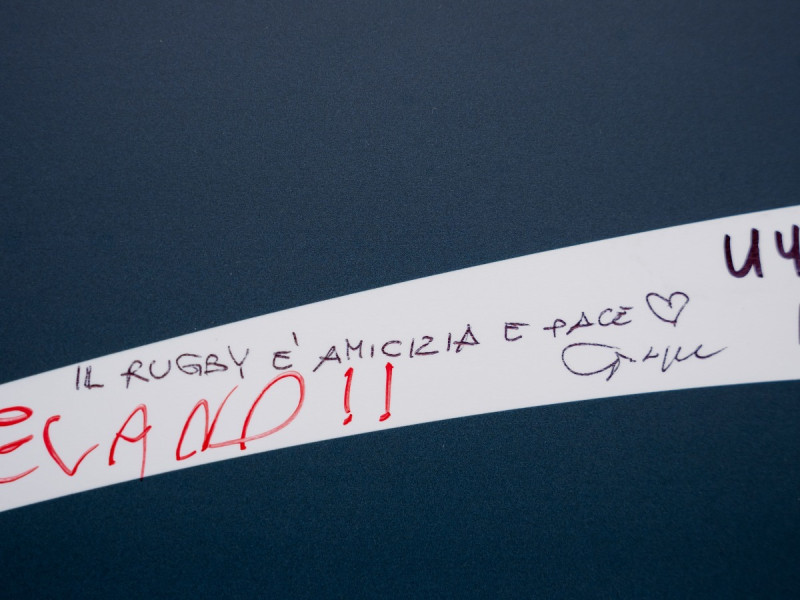 IL RUGBY E' AMICIZIA E PACE ♡
EVAND!!